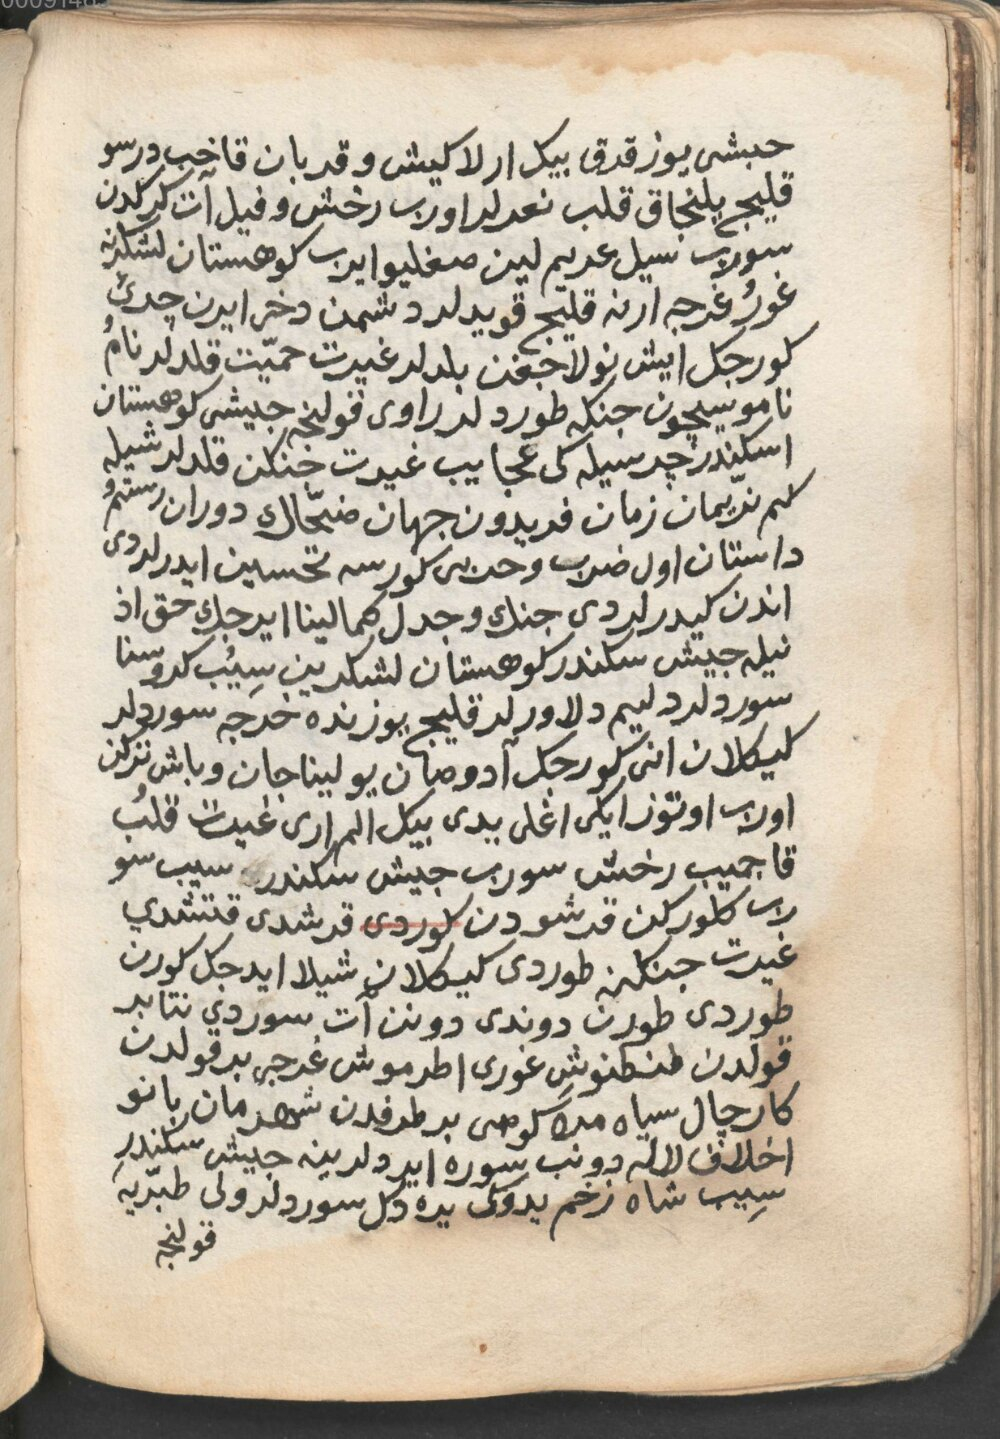 حبشی یوز قرق بیک ار لا کیش و قربان قاخب در سو
قلیج یلنجاق قلب نعرلر اورب رخش و فیل آت کرکدن
سورب سیل عریم لین صغلیو ایرب کوهستان لشکرنه
غورُ غرجه ارنه قلیج قویدلر دشمن دخی ایرن چرئ
کورجک ایش نولاجغن بلدلر غیرت حمیّت قلدلر نامُ
ناموسیچون جنکه طوردلر راوی قولنجه جیشی کوهستان
اسکندر چرسیله کی عجایب غیرت جنکن قلدلر شیله
کم نریمان زمان فریدون جهان ضحّاك دوران رستمُ
داستان اول ضرب و حربی کورسه تحسین ایدرلردی
اندن کیدرلردی جنك و جدل کمالینا ایرجك حق اذ
نیله جیش سکندر کوهستان لشکرین سِیُب کروسنا
سوردلر دلیم دلاورلر قلیج یوزنده خرجه سوردلر
کیکلان انی کورجک آدو صان یولینا جان و باش ترکن
اورب اوتوز ایکی اغلی یدی بیک الم اری غیرت قلبُ
قاجمیب رخش سورب جیش سکندر سیب سو
رب کلورکن قرشودن کوردی قرشدی قتشدي
غیرت جنکنه طوردی کیکلان شیلا ایدجک کورن
طوردی طورن دوندی دونن آت سوردي نتابر
قولدن طنکنوش غوری اطرموش غرجی بر قولدن
کارچال سیاه مرد کوهی بر طرفدن شهرمان بانو
اخلاف لاله دونب سوره ایردلر ینه جیش سکندرِ
سِیب شاه زخم یدوکی یره دکل سوردلر ولی طبریّه
قولنجه